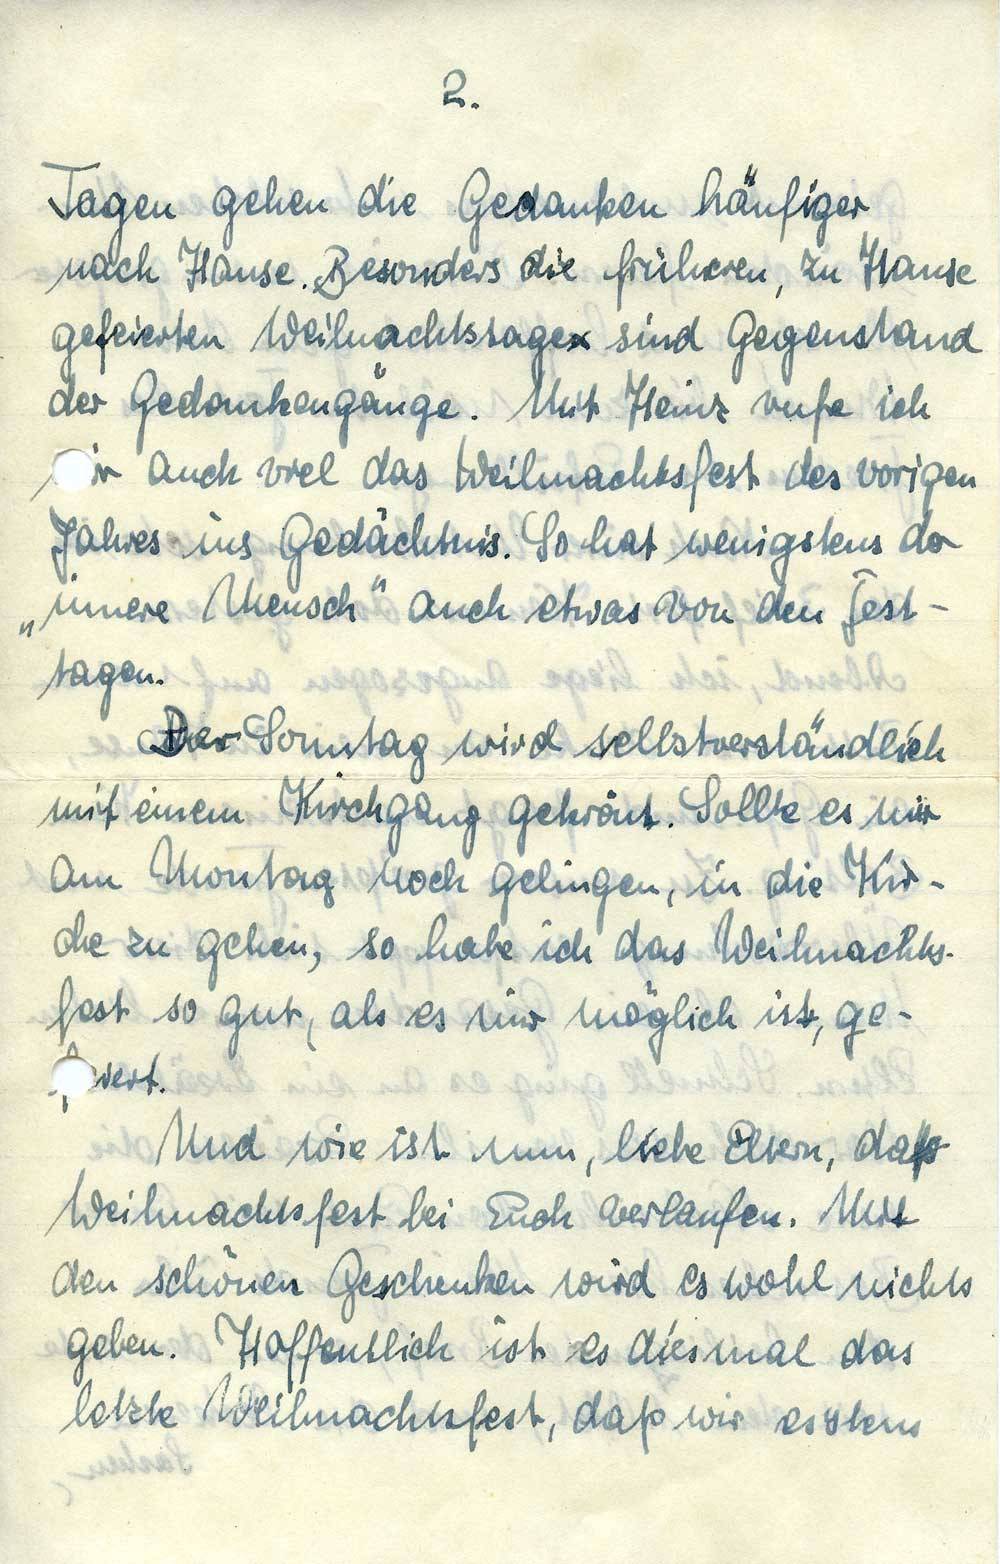 2.
Tagen gehen die Gedanken häufiger
nach Hause. Besonders die früheren, zu Hause
gefeierten Weihnachtstage sind Gegenstand
der Gedankengänge. Mit Heinz rufe ich
mir auch viel das Weihnachtsfest des vorigen
Jahres ins Gedächtnis. So hat wenigstens der
„innere Mensch" auch etwas von den Fest-
tagen.
Der Sonntag wird selbstverständlich
mit einem Kirchgang gekrönt. Sollte es mir
am Montag noch gelingen, in die Kir-
che zu gehen, so habe ich das Weihnachts-
fest so gut, als es mir möglich ist, ge-
feiert.
Und wie ist nun, liebe Eltern, das
Weihnachtsfest bei Euch verlaufen. Mit
den schönen Geschenken wird es wohl nichts
geben. Hoffentlich ist es diesmal das
letzte Weihnachtsfest, daß wir erstens